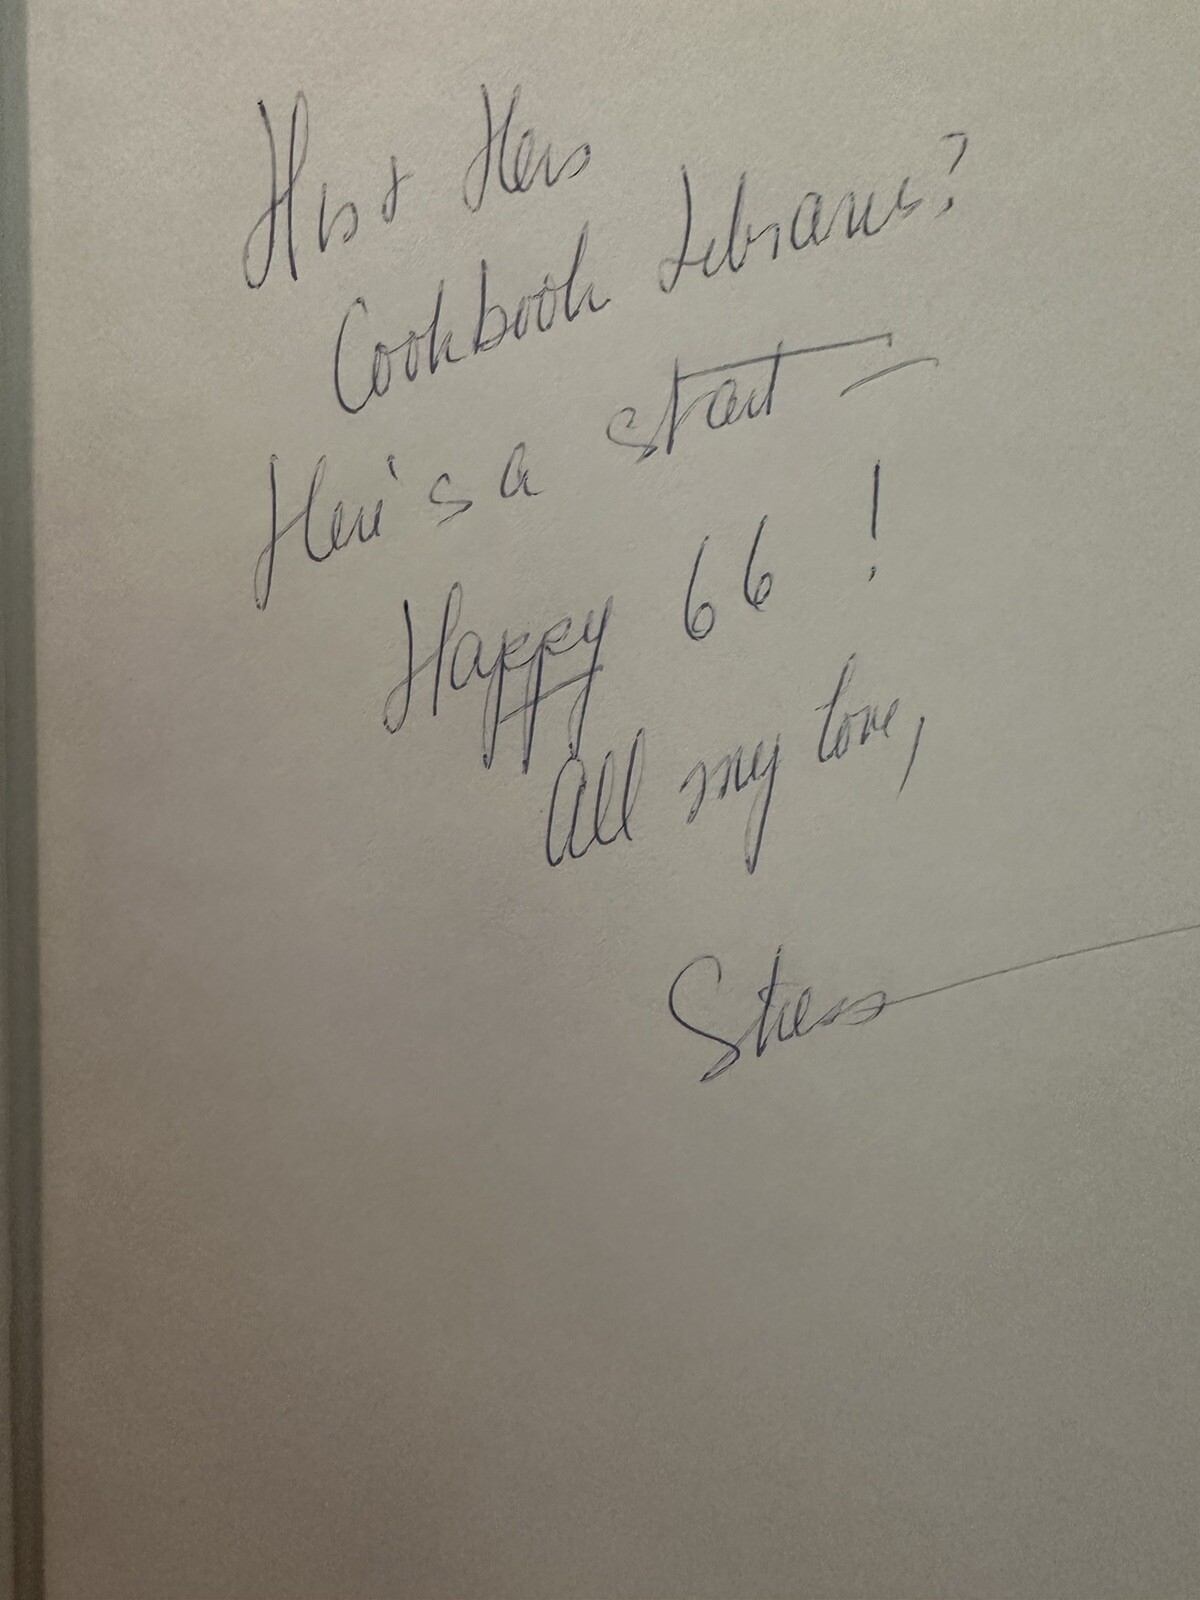 His & Hers
Cookbook Libraries?
Here's a start —
Happy 66 !
All my love,
Stress